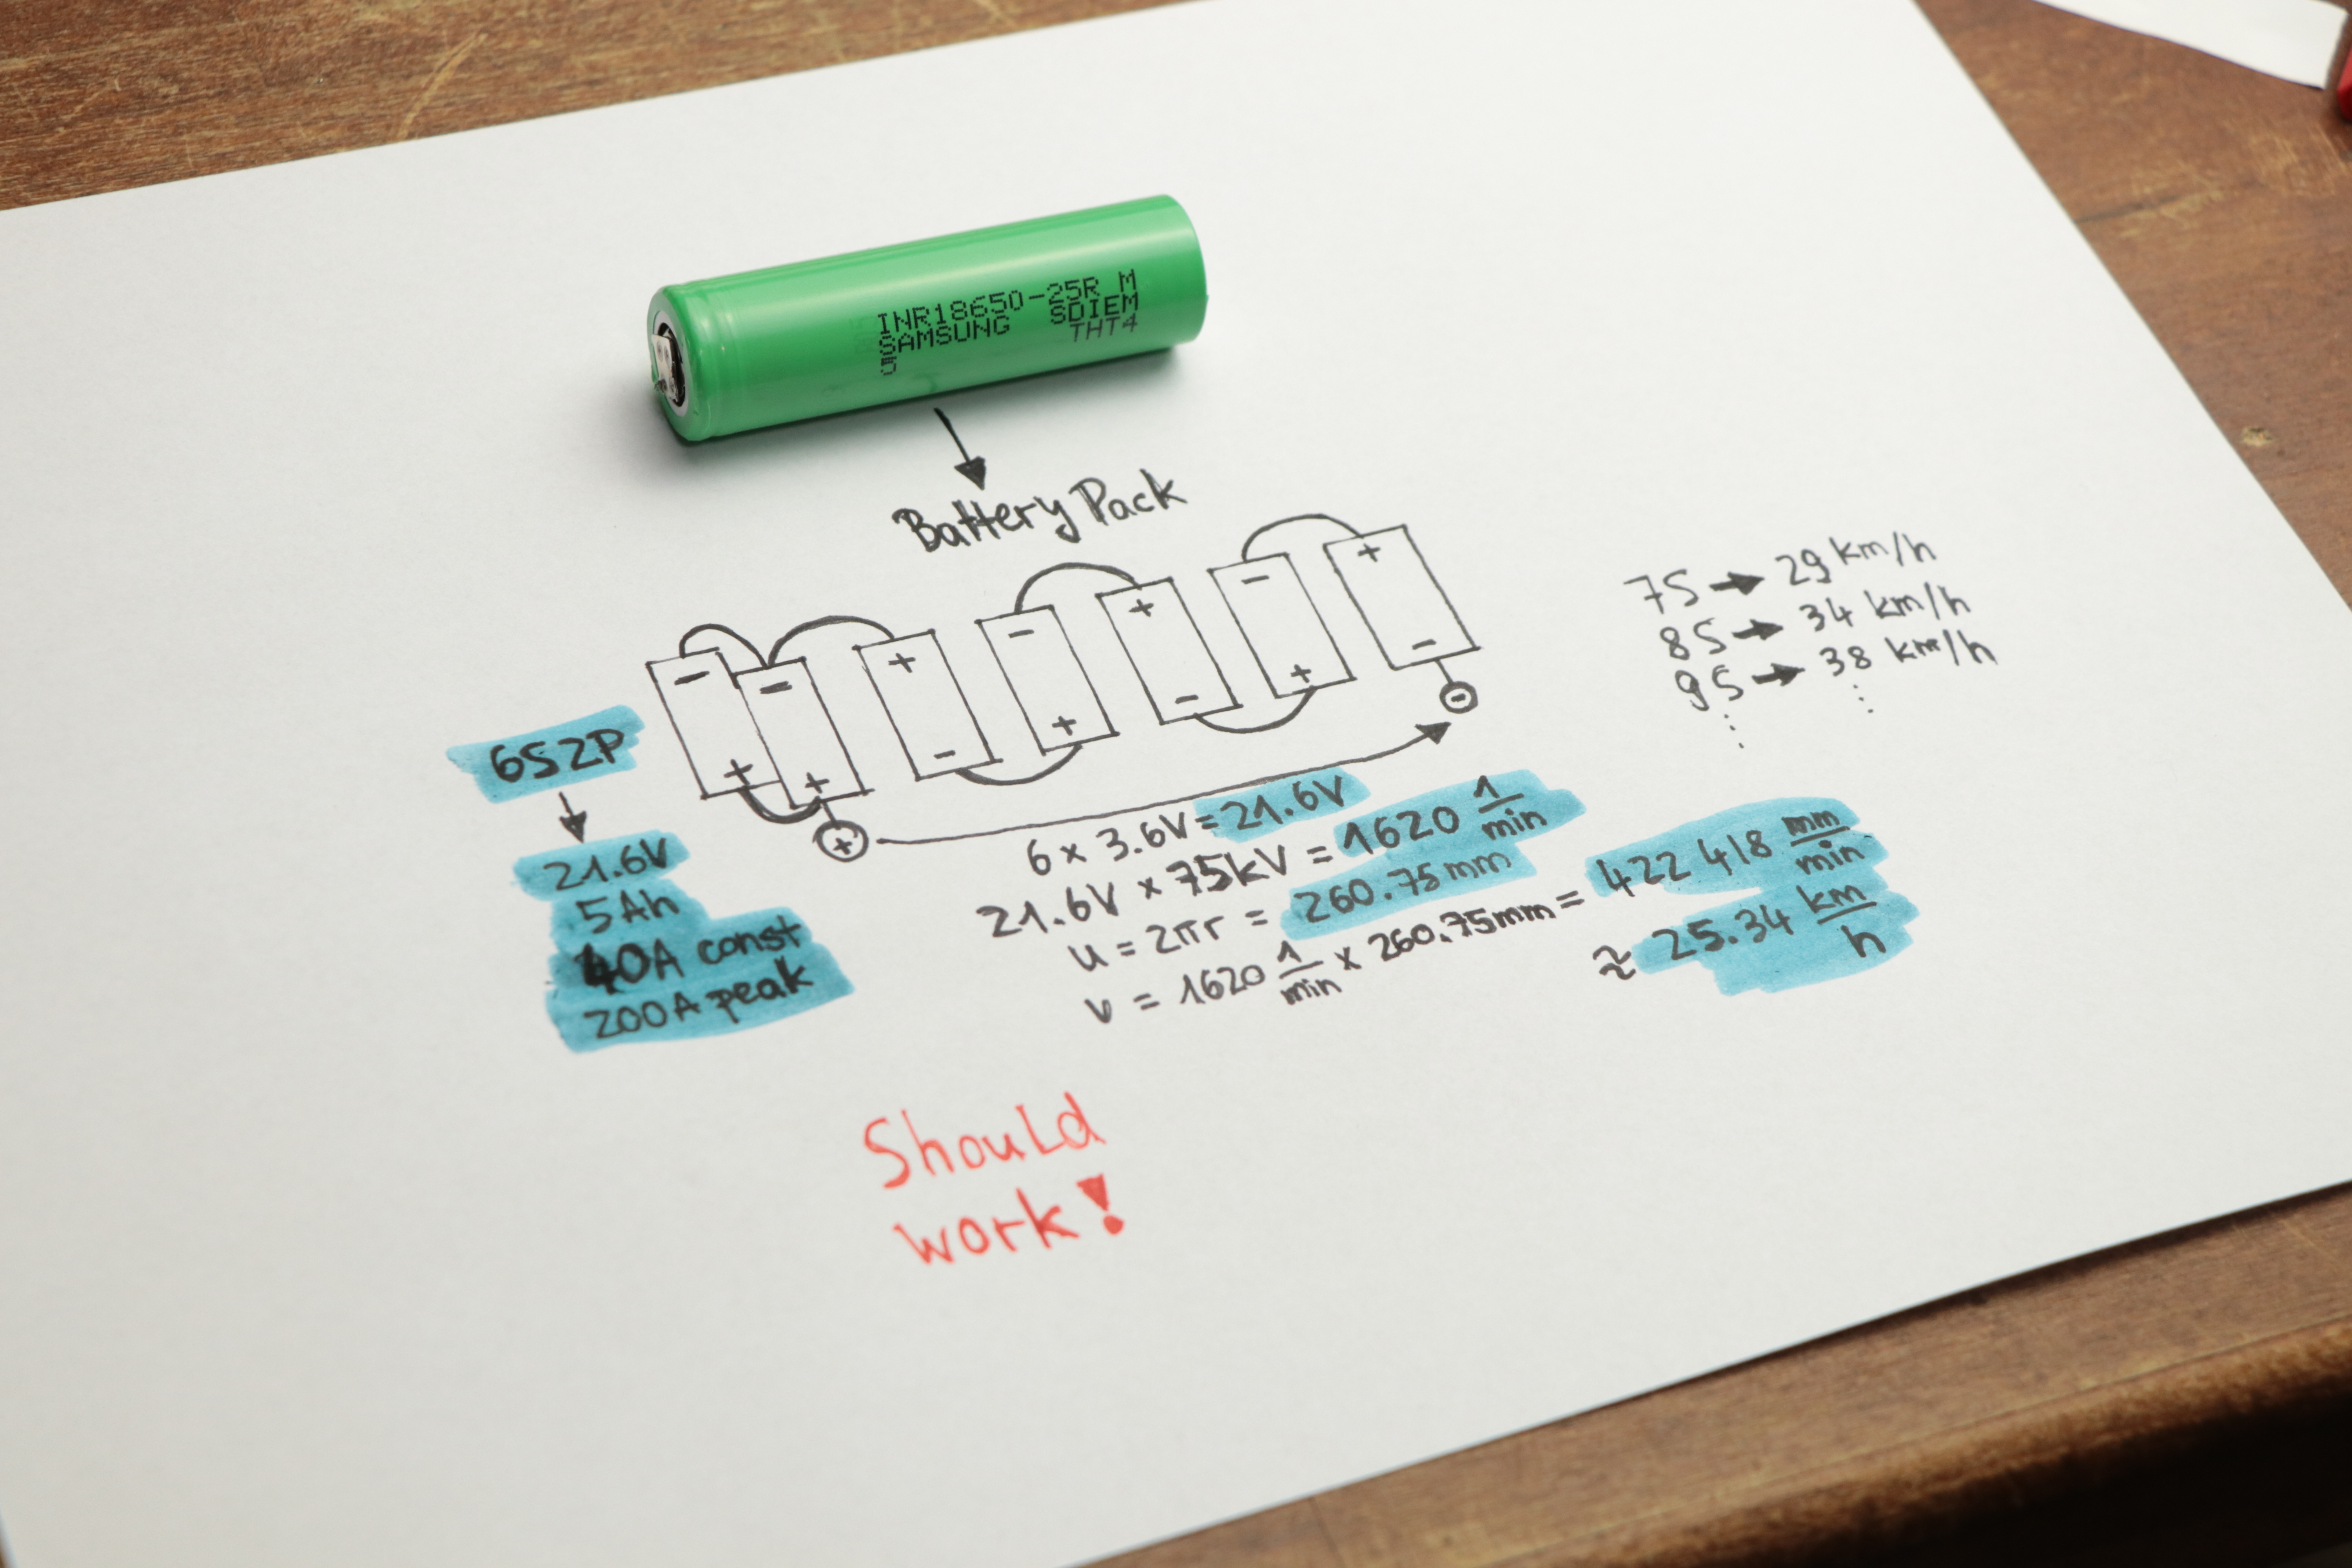 INR18650-25R M
SAMSUNG SDIEM
THT4
Battery Pack
- - + - + - +
+ + - + - + -
+
-
6S2P
21.6V
5Ah
40A const
200A peak
6 x 3.6V = 21.6V
21.6V x 75kV = 1620 1/min
u = 2πr = 260.75mm
v = 1620 1/min x 260.75mm = 422 418 mm/min
≈ 25.34 km/h
7S → 29 km/h
8S → 34 km/h
9S → 38 km/h
⋮ ⋮
Should
work!